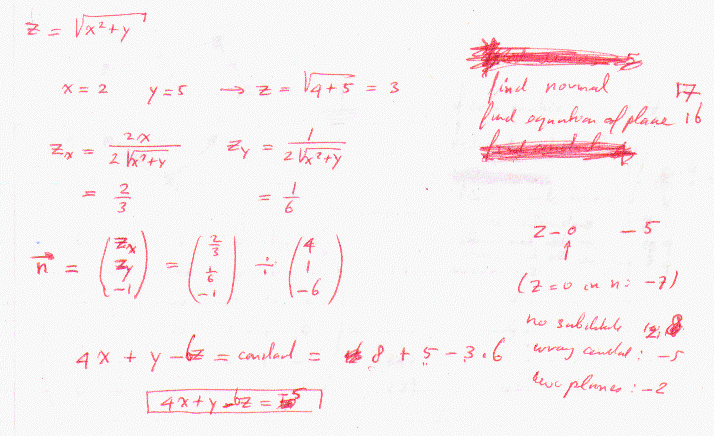 z = √(x² + y)
x = 2   y = 5   → z = √(4 + 5) = 3
z_x = 2x / (2√(x² + y))   z_y = 1 / (2√(x² + y))
= 2/3   = 1/6
n⃗ = (z_x, z_y, -1) = (2/3, 1/6, -1) ÷ (4, 1, -6)
4x + y - 6z = = 8 + 5 - 3·6
4x + y - 6z = -5
find normal 17
find equation of plane 16
z - 0   - 5
↑
(z = 0 in n: -7)
no
wrong : -5
two planes : -2